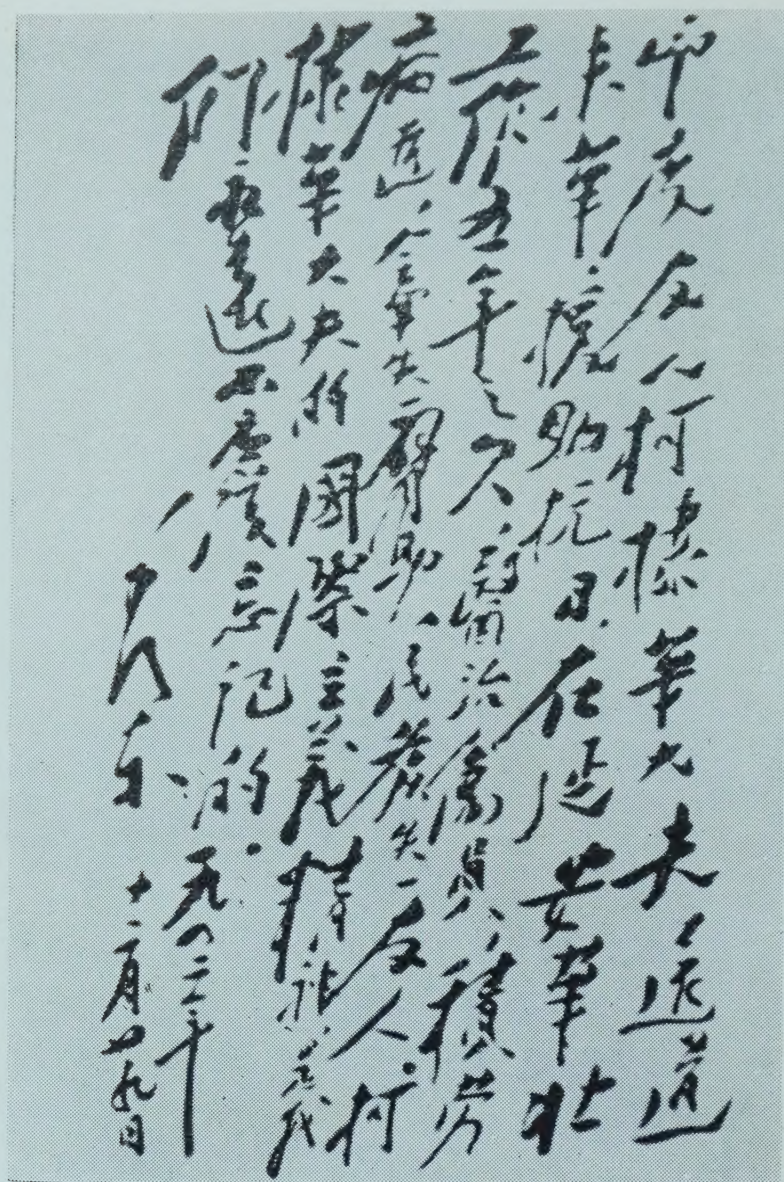 印度友人柯棣華大夫遠道
来華,援助抗日,在延安華北
工作五年之久,醫治傷員,積劳
病逝,全軍失一臂助,民族失一友人。柯
棣華大夫的國際主義精神,是我
们永遠不應該忘記的。
毛澤东
一九四二年
十二月廿九日